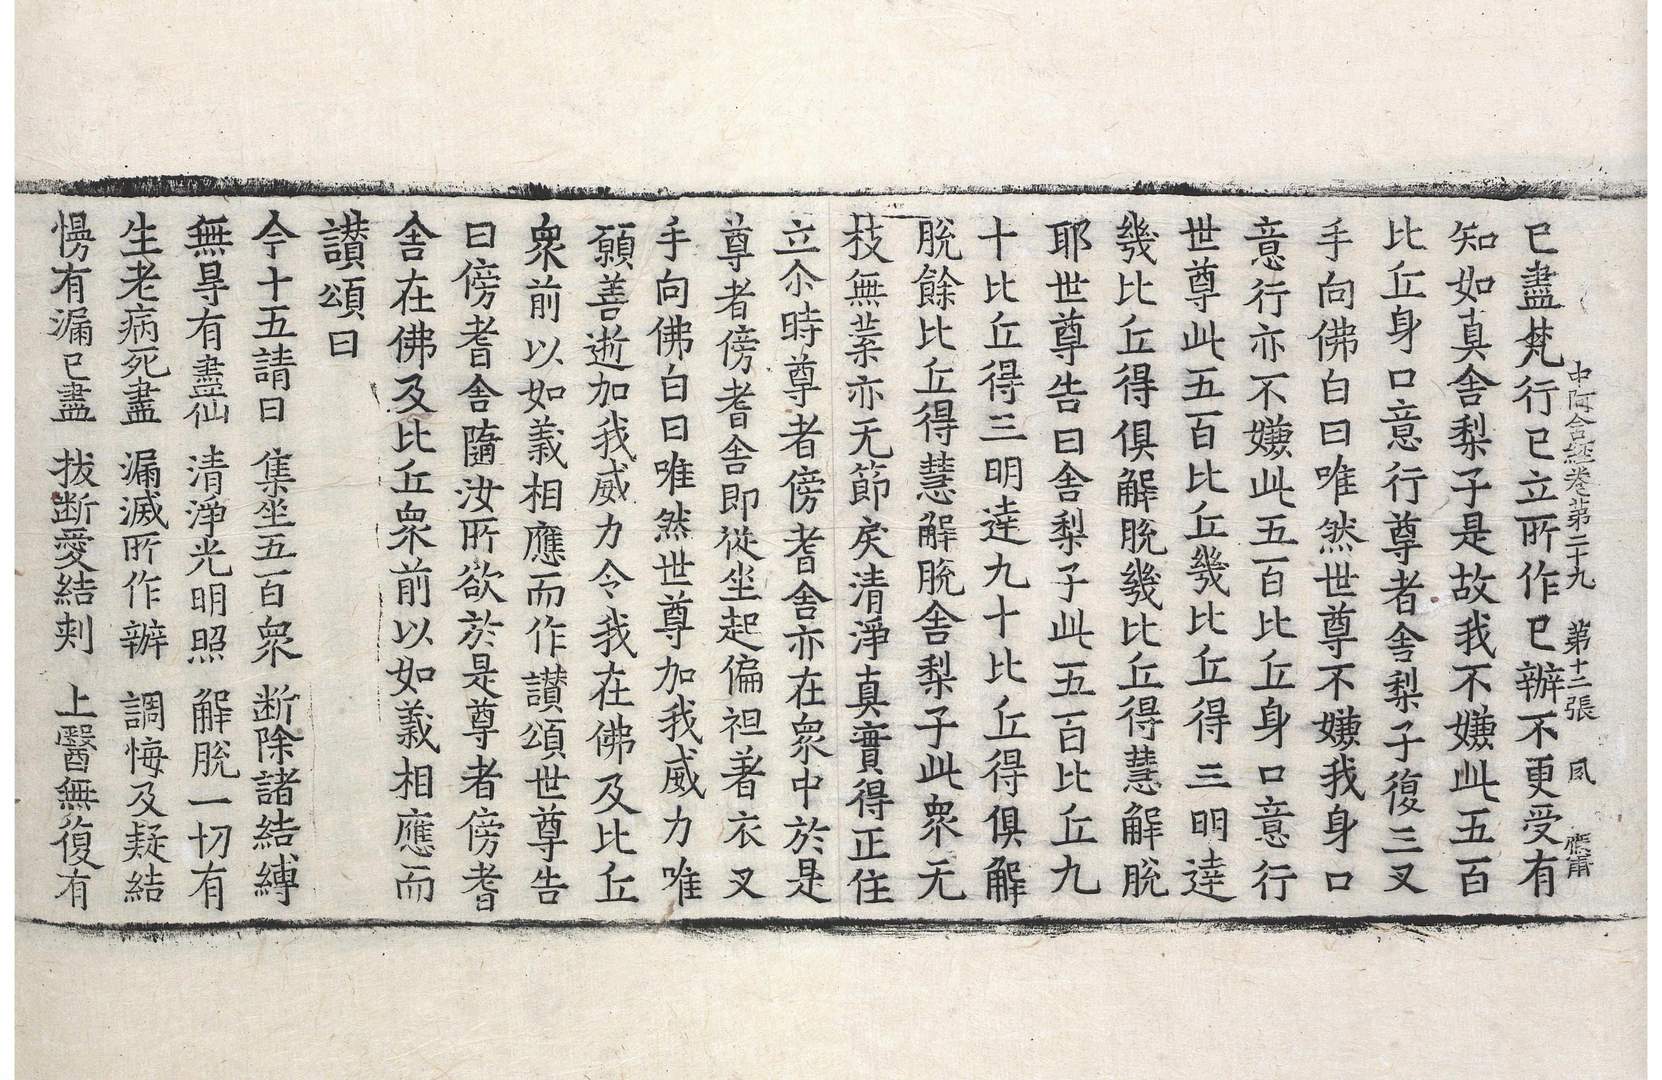 中阿含經卷苐二十九 第十二張 夙 應甫
已盡梵行已立所作已辦不更受有
知如真舍梨子是故我不嫌此五百
比丘身口意行尊者舍梨子復三叉
手向佛白曰唯然世尊不嫌我身口
意行亦不嫌此五百比丘身口意行
世尊此五百比丘幾比丘得三明達
幾比丘得俱解脫幾比丘得慧解脫
耶世尊告曰舍梨子此五百比丘九
十比丘得三明達九十比丘得俱解
脫餘比丘得慧解脫舍梨子此衆无
枝無葉亦无節戾清淨真實得正住
立尒時尊者傍耆舍亦在衆中於是
尊者傍耆舍即從坐起偏袒著衣叉
手向佛白曰唯然世尊加我威力唯
願善逝加我威力令我在佛及比丘
衆前以如義相應而作讃頌世尊告
曰傍耆舍隨汝所欲於是尊者傍耆
舍在佛及比丘衆前以如義相應而
讃頌曰
今十五請日 集坐五百衆 断除諸結縛
無㝵有盡仙 清淨光明照 解脫一切有
生老病死盡 漏滅所作辦 調悔及疑結
慢有漏已盡 拔断愛結刾 上醫無復有